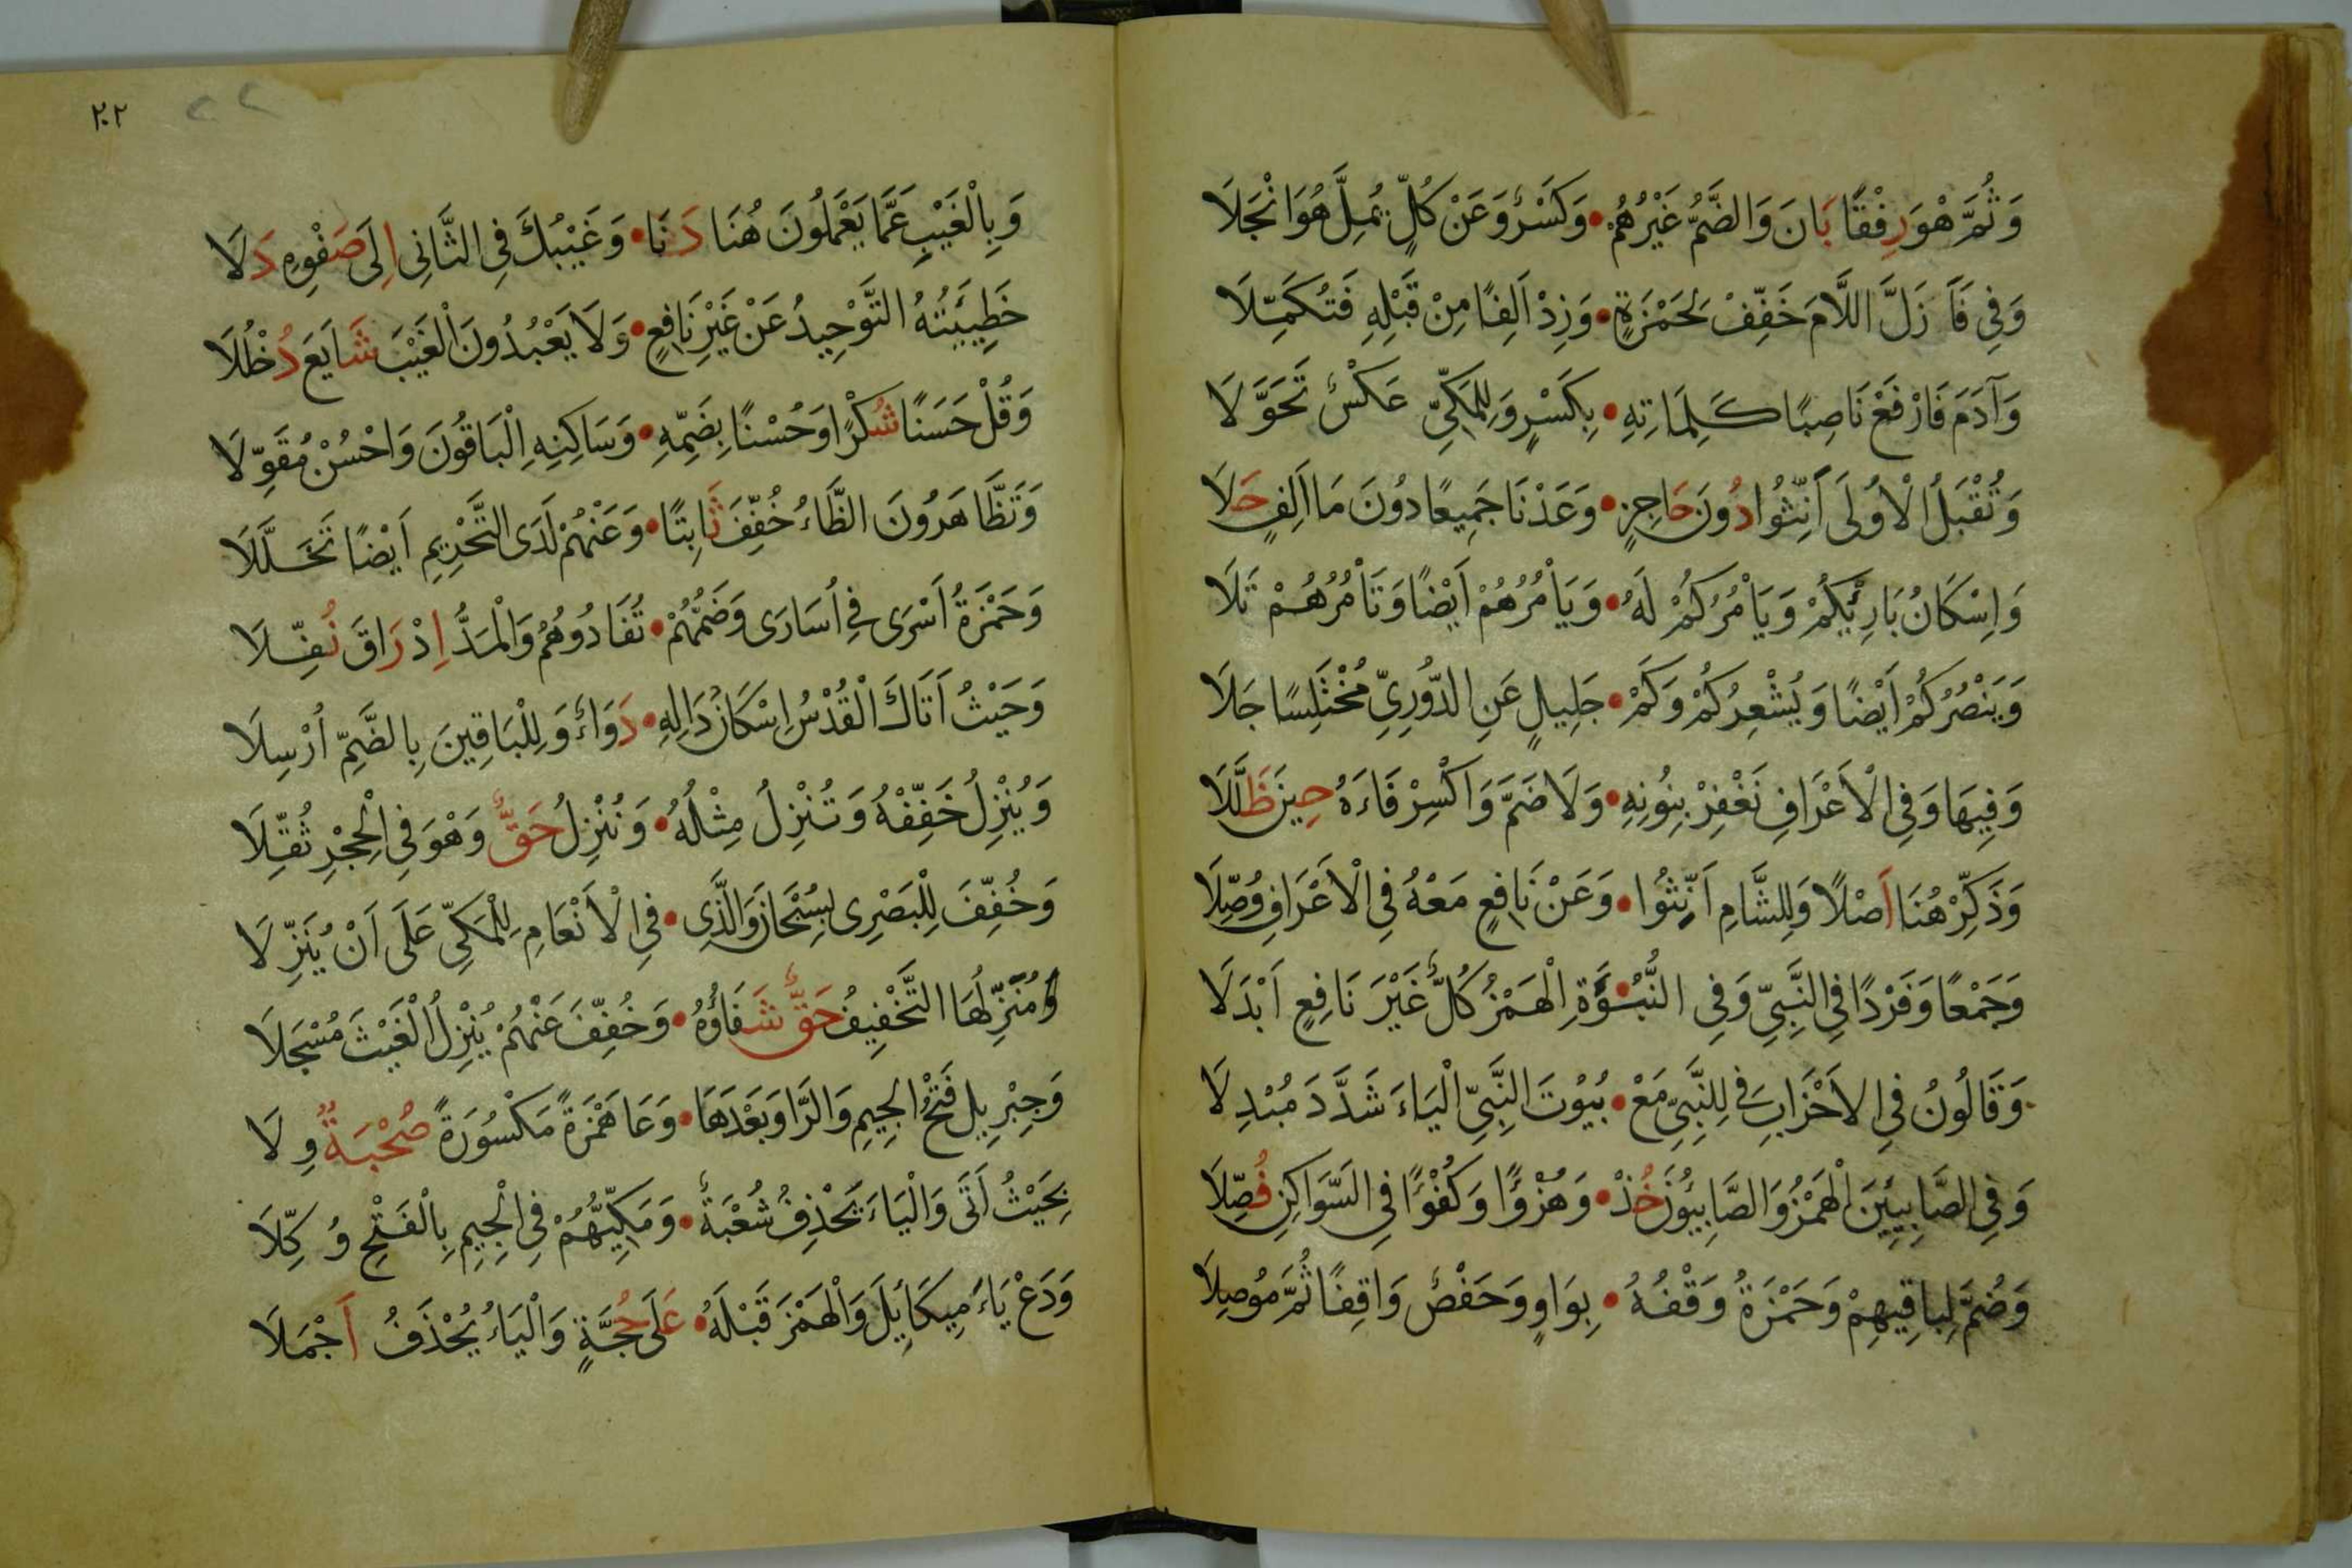 وَثُمَّ هْوَ رِفْقًا بَانَ وَالضَّمُّ غَيْرُهُمْ • وَكَسْرٌ وَعَنْ كُلٍّ يُمِلَّ هُوَ انْجَلَا
وَفِي فَأَزَلَّ اللَّامَ خَفِّفْ لِحَمْزَةٍ • وَزِدْ اَلِفًا مِنْ قَبْلِهِ فَتُكَمِّلَا
وَآدَمَ فَارْفَعْ نَاصِبًا كَلِمَاتِهِ • بِكَسْرٍ وَلِلْمَكِّيِّ عَكْسٌ تَحَوَّلَا
وَتُقْبَلُ الْأُولَى أَنِّثُوا دُونَ حَاجِزٍ • وَعَدْنَا جَمِيعًا دُونَ مَا اَلِفٍ حَلَا
وَاِسْكَانُ بَارِئْكُمْ وَيَأْمُرْكُمْ لَهُ • وَيَأْمُرْهُمْ أَيْضًا وَتَأْمُرْهُمْ تَلَا
وَيَنْصُرْكُمْ أَيْضًا وَيُشْعِرْكُمْ وَكَمْ • جَلِيلٍ عَنِ الدُّورِيِّ مُخْتَلِسًا جَلَا
وَفِيهَا وَفِي الْأَعْرَافِ نَغْفِرْ بِنُونِهِ • وَلَا ضَمَّ وَاكْسِرْ فَاءَهُ حِينَ ظَلَّلَا
وَذَكِّرْ هُنَا أَصْلًا وَلِلشَّامِ اَنِّثُوا • وَعَنْ نَافِعٍ مَعْهُ فِي الْأَعْرَافِ وُصِّلَا
وَجَمْعًا وَفَرْدًا فِي النَّبِيِّ وَفِي النُّبُوْءَةِ الْهَمْزُ كُلٌّ غَيْرَ نَافِعٍ اَبْدَلَا
وَقَالُونُ فِي الْأَحْزَابِ فِي لِلنَّبِيِّ مَعْ • بُيُوتَ النَّبِيِّ الْيَاءَ شَدَّدَ مُبْدِلَا
وَفِي الصَّابِئِينَ الْهَمْزُ وَالصَّابِئُونَ خُذْ • وَهُزْؤًا وَكُفْؤًا فِي السَّوَاكِنِ فُصِّلَا
وَضُمَّ لِبَاقِيهِمْ وَحَمْزَةُ وَقْفُهُ • بِوَاوٍ وَحَفْصٌ وَاقِفًا ثُمَّ مُوصِلَا
٢٠٢
٢٢
وَبِالْغَيْبِ عَمَّا يَعْمَلُونَ هُنَا دَنَا • وَغَيْبُكَ فِي الثَّانِي اِلَى صَفْوِهِ دَلَا
خَطِيئَتُهُ التَّوْحِيدُ عَنْ غَيْرِ نَافِعٍ • وَلَا يَعْبُدُونَ الْغَيْبَ شَايَعَ دُخْلُلَا
وَقُلْ حَسَنًا شُكْرًا وَحُسْنًا بِضَمِّهِ • وَسَاكِنِهِ الْبَاقُونَ وَاحْسُنْ مُقَوِّلَا
وَتَظَّاهَرُونَ الظَّاءُ خُفِّفَ ثَابِتًا • وَعَنْهُمْ لَدَى التَّحْرِيمِ اَيْضًا تَحَلَّلَا
وَحَمْزَةُ اَسْرَى فِي اُسَارَى وَضَمُّهُمْ • تُفَادُوهُمُ وَالْمَدُّ اِذْ رَاقَ نُفِّلَا
وَحَيْثُ اَتَاكَ الْقُدْسُ اِسْكَانُ دَالِهِ • دَوَاءٌ وَلِلْبَاقِينَ بِالضَّمِّ اُرْسِلَا
وَيُنْزِلُ خَفِّفْهُ وَتُنْزِلُ مِثْلُهُ • وَنُنْزِلُ حَقٌّ وَهْوَ فِي الْحِجْرِ ثُقِّلَا
وَخُفِّفَ لِلْبَصْرِي بِسُبْحَانَ وَالَّذِي • فِي الْأَنْعَامِ لِلْمَكِّيِّ عَلَى اَنْ يُنَزِّلَا
وَمُنْزِلُهَا التَّخْفِيفُ حَقٌّ شَفَاؤُهُ • وَخُفِّفَ عَنْهُمْ يُنْزِلُ الْغَيْثَ مُسْجَلَا
وَجِبْرِيلَ فَتْحُ الْجِيمِ وَالرَّا وَبَعْدَهَا • وَعَا هَمْزَةً مَكْسُورَةً صُحْبَةٌ وِلَا
بِحَيْثُ اَتَى وَالْيَاءَ يَحْذِفُ شُعْبَةٌ • وَمَكِّيُّهُمْ فِي الْجِيمِ بِالْفَتْحِ وُكِّلَا
وَدَعْ يَاءَ مِيكَائِيلَ وَالْهَمْزَ قَبْلَهُ • عَلَى حُجَّةٍ وَالْيَاءُ يُحْذَفُ اَجْمَلَا